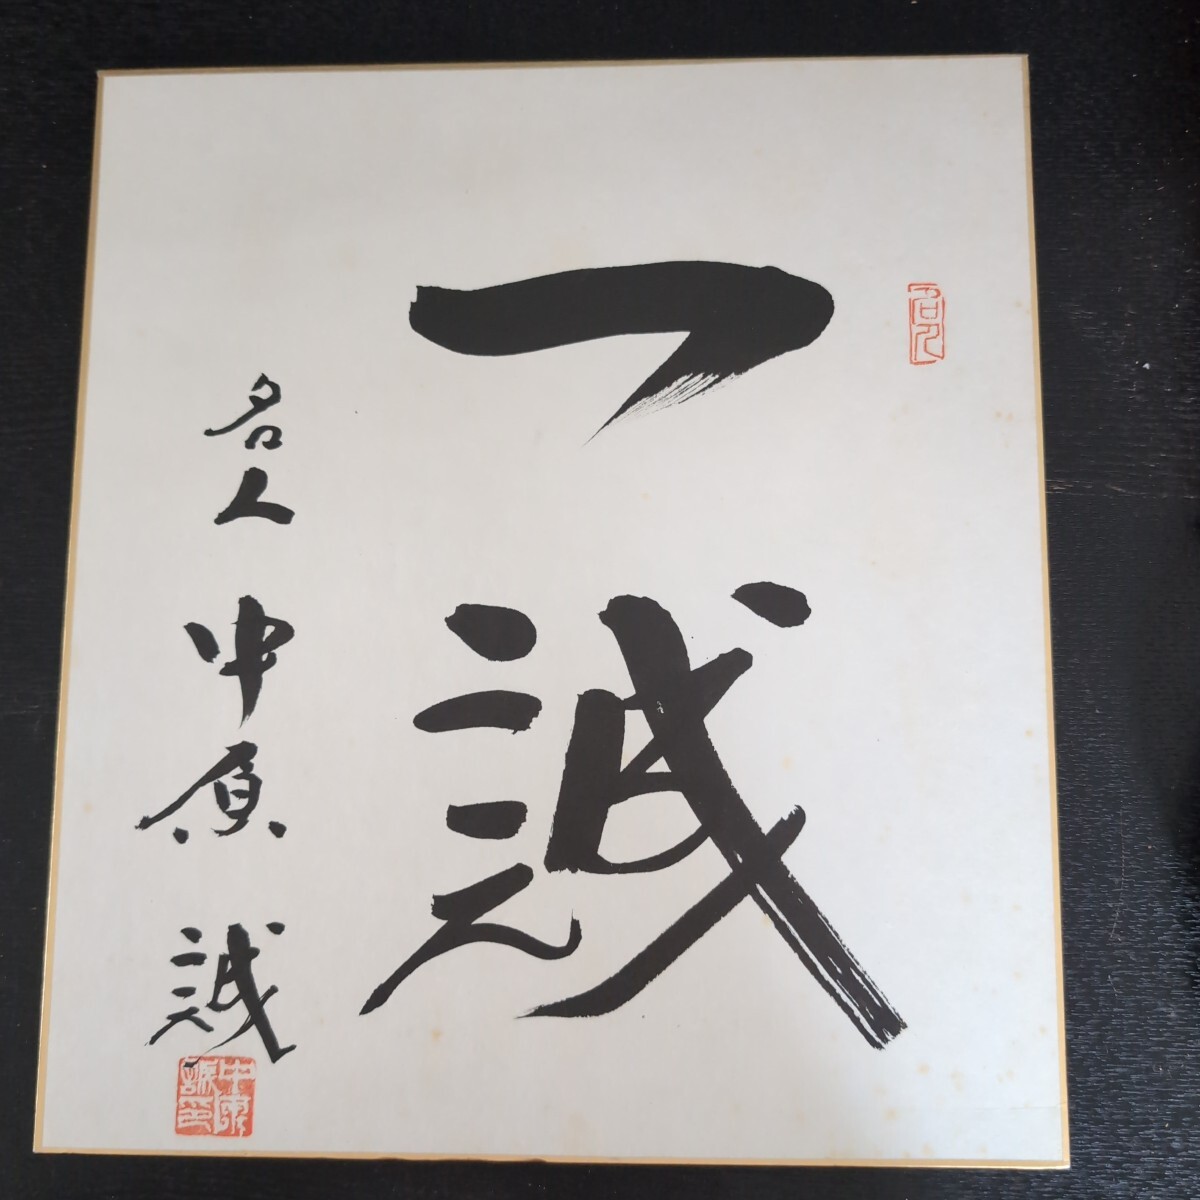 名人
一誠
名人 中原 誠
中原誠印